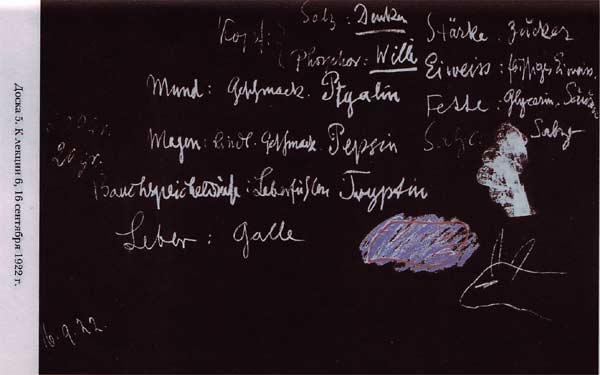 Kopf: { Salz: Denken
Phosphor: Wille
Mund: Geschmack. Ptyalin
Magen: Geschmack. Pepsin
20 gr.
Bauchspeicheldrüse: Leberfühlen Trypsin
Leber: Galle
Stärke: Zucker
Eiweiss: flüssiges Eiweiss.
Fette: Glycerin. Säuren
Salze: Salze
16.9.22.
Доска 5. К лекции 6, 16 сентября 1922 г.